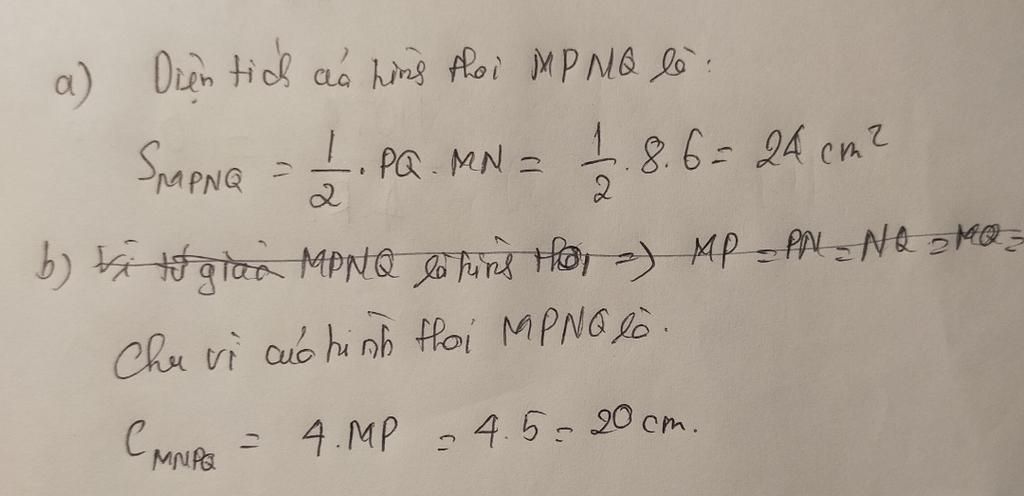 a) Diện tích củả hình thoi MPNQ là:
S_MPNQ = 1/2 . PQ . MN = 1/2 . 8 . 6 = 24 cm²
b) Vì tứ giác MPNQ là hình thoi => MP = PN = NQ = MQ =
Chu vi của hình thoi MPNQ là.
C_MNPQ = 4 . MP = 4 . 5 = 20 cm.